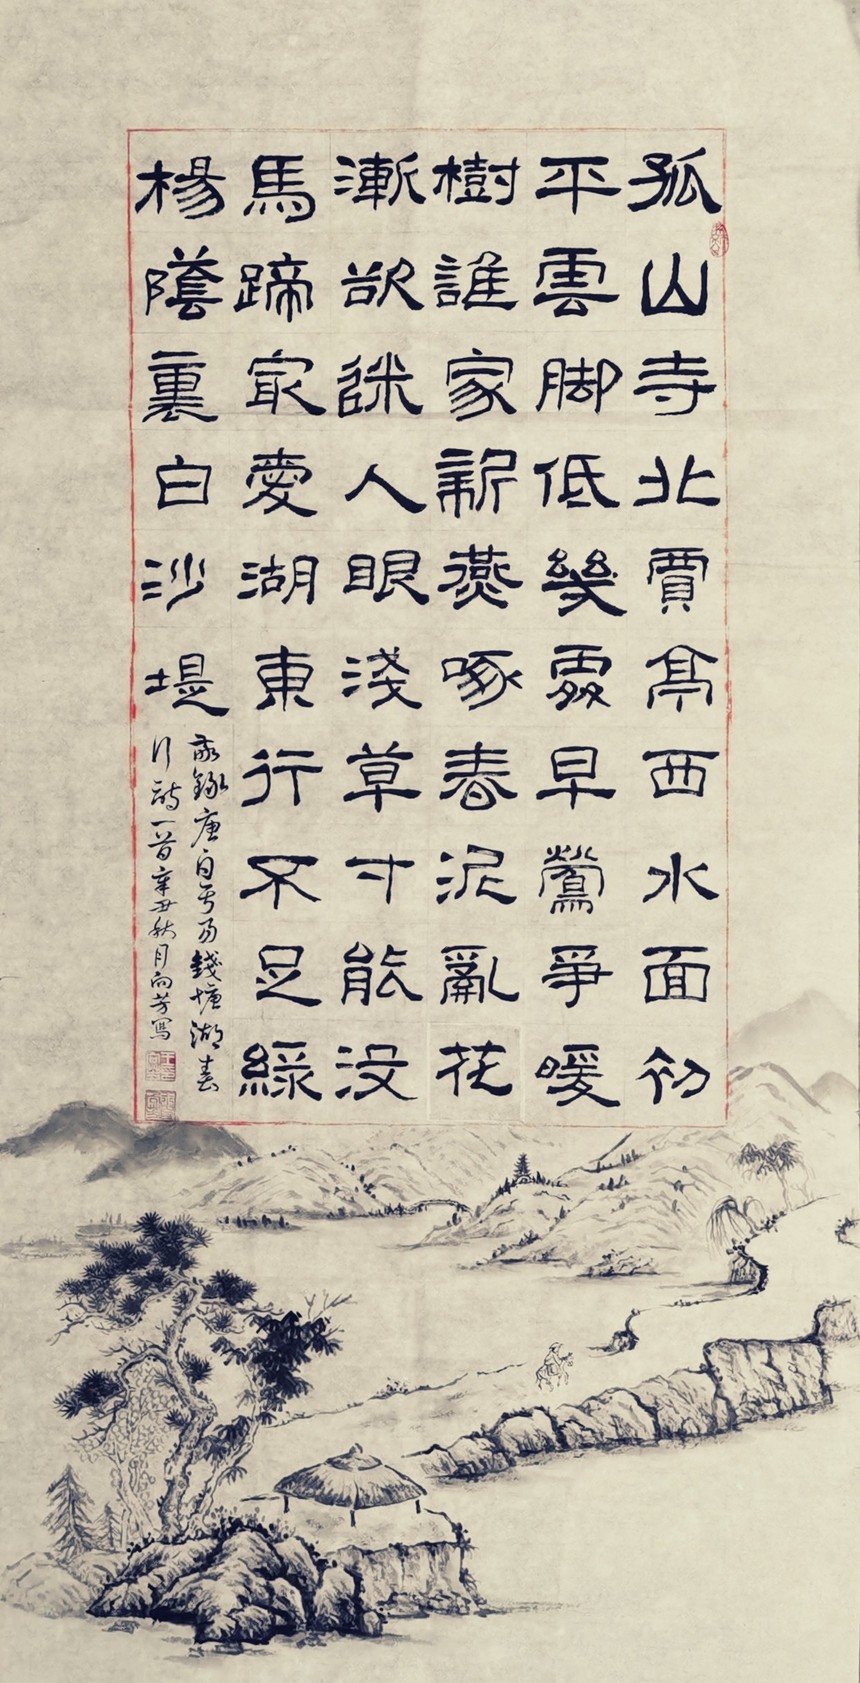 孤山寺北賈亭西水面初
平雲脚低幾處早鶯爭暖
樹誰家新燕啄春泥亂花
漸欲迷人眼淺草才能没
馬蹄冣愛湖東行不足綠
楊蔭裏白沙堤
敬錄唐白居易錢塘湖春
行詩一首辛丑秋月向芳寫